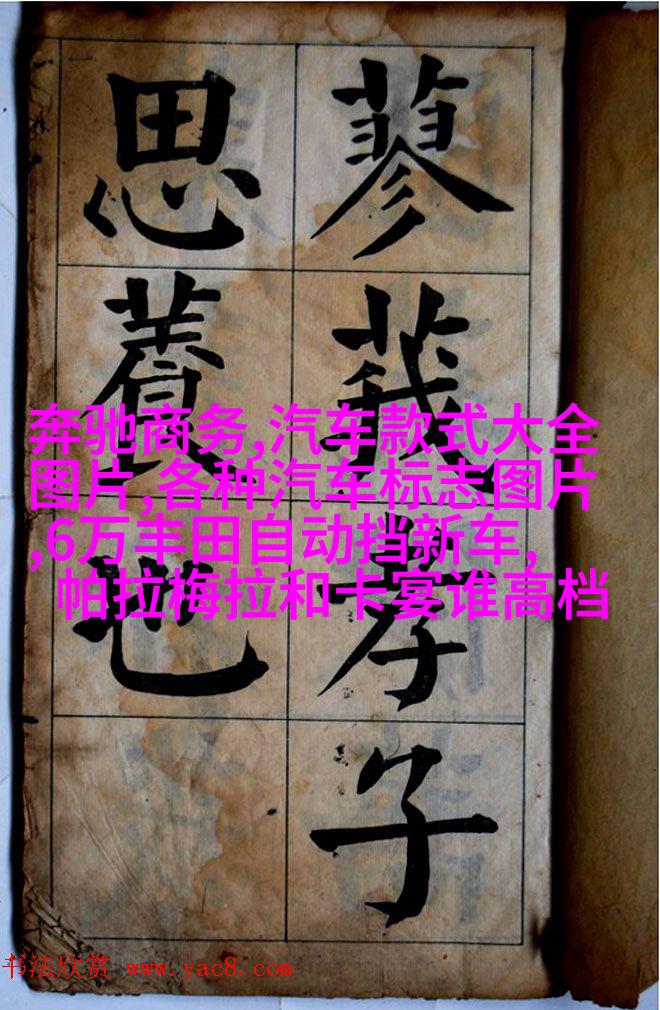 蓼莪孝子
思養也
奔驰商务,汽车款式大全
图片,各种汽车标志图片
,6万丰田自动挡新车,
帕拉梅拉和卡宴谁高档
书法欣赏 www.yac8.com